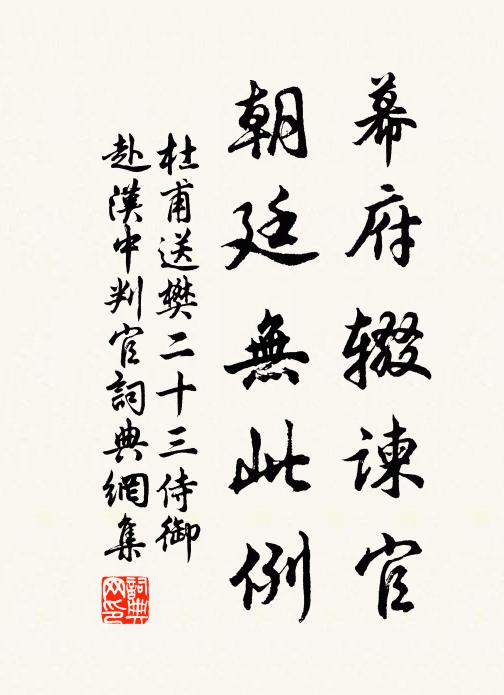 幕府辍諫官
朝廷無此例
杜甫送樊二十三侍御
赴漢中判官詞典網集
詞典
网印